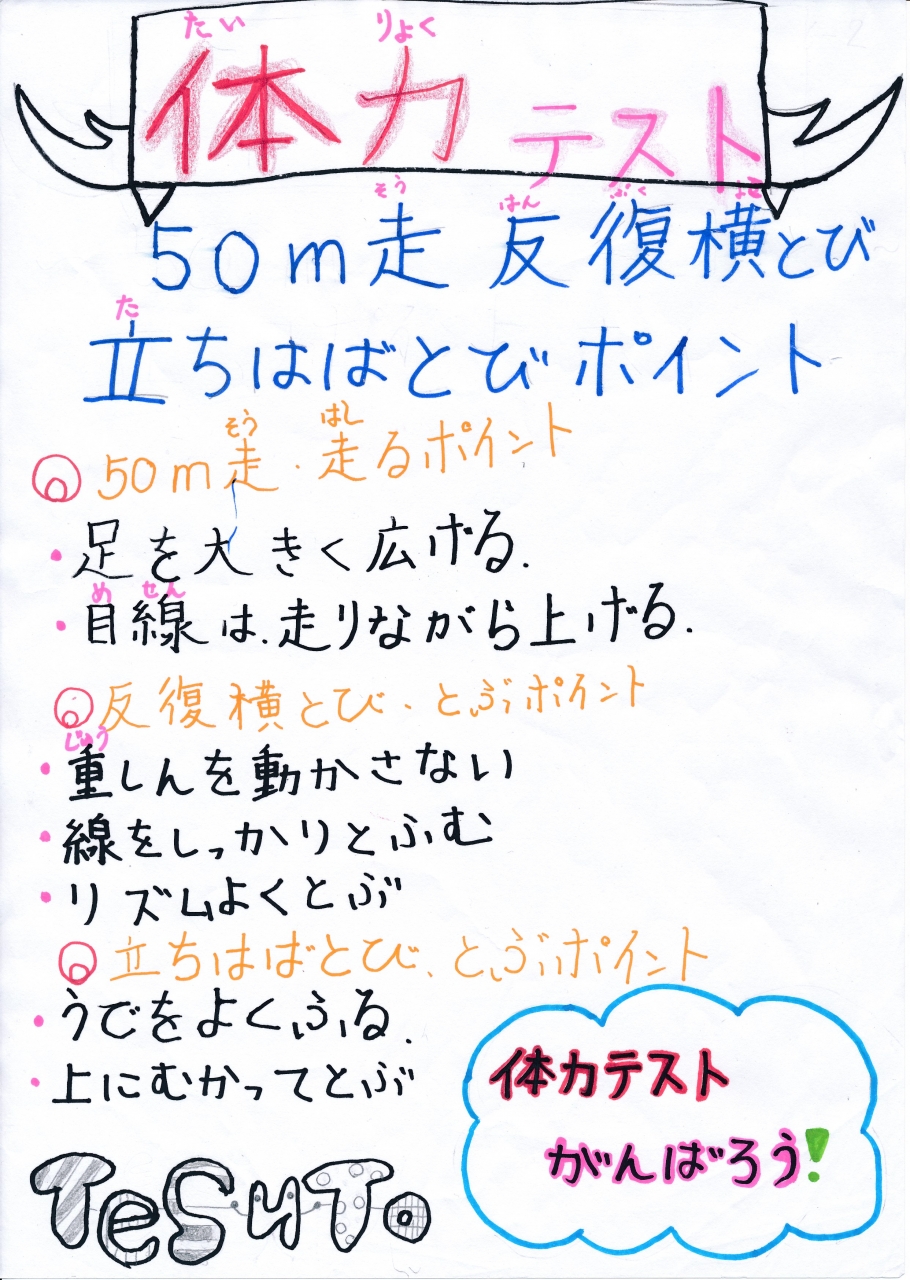 たい りょく
体力テスト
そう はん ぷく よこ
50m走 反復横とび
た
立ちはばとびポイント
そう はし
50m走・走るポイント
・足を大きく広げる.
め せん
・目線は.走りながら上げる.
反復横とび・とぶポイント
じゅう
・重しんを動かさない
・線をしっかりとふむ
・リズムよくとぶ
立ちはばとび.とぶポイント
・うでをよくふる.
・上にむかってとぶ
体力テスト
がんばろう!
TeSuTo